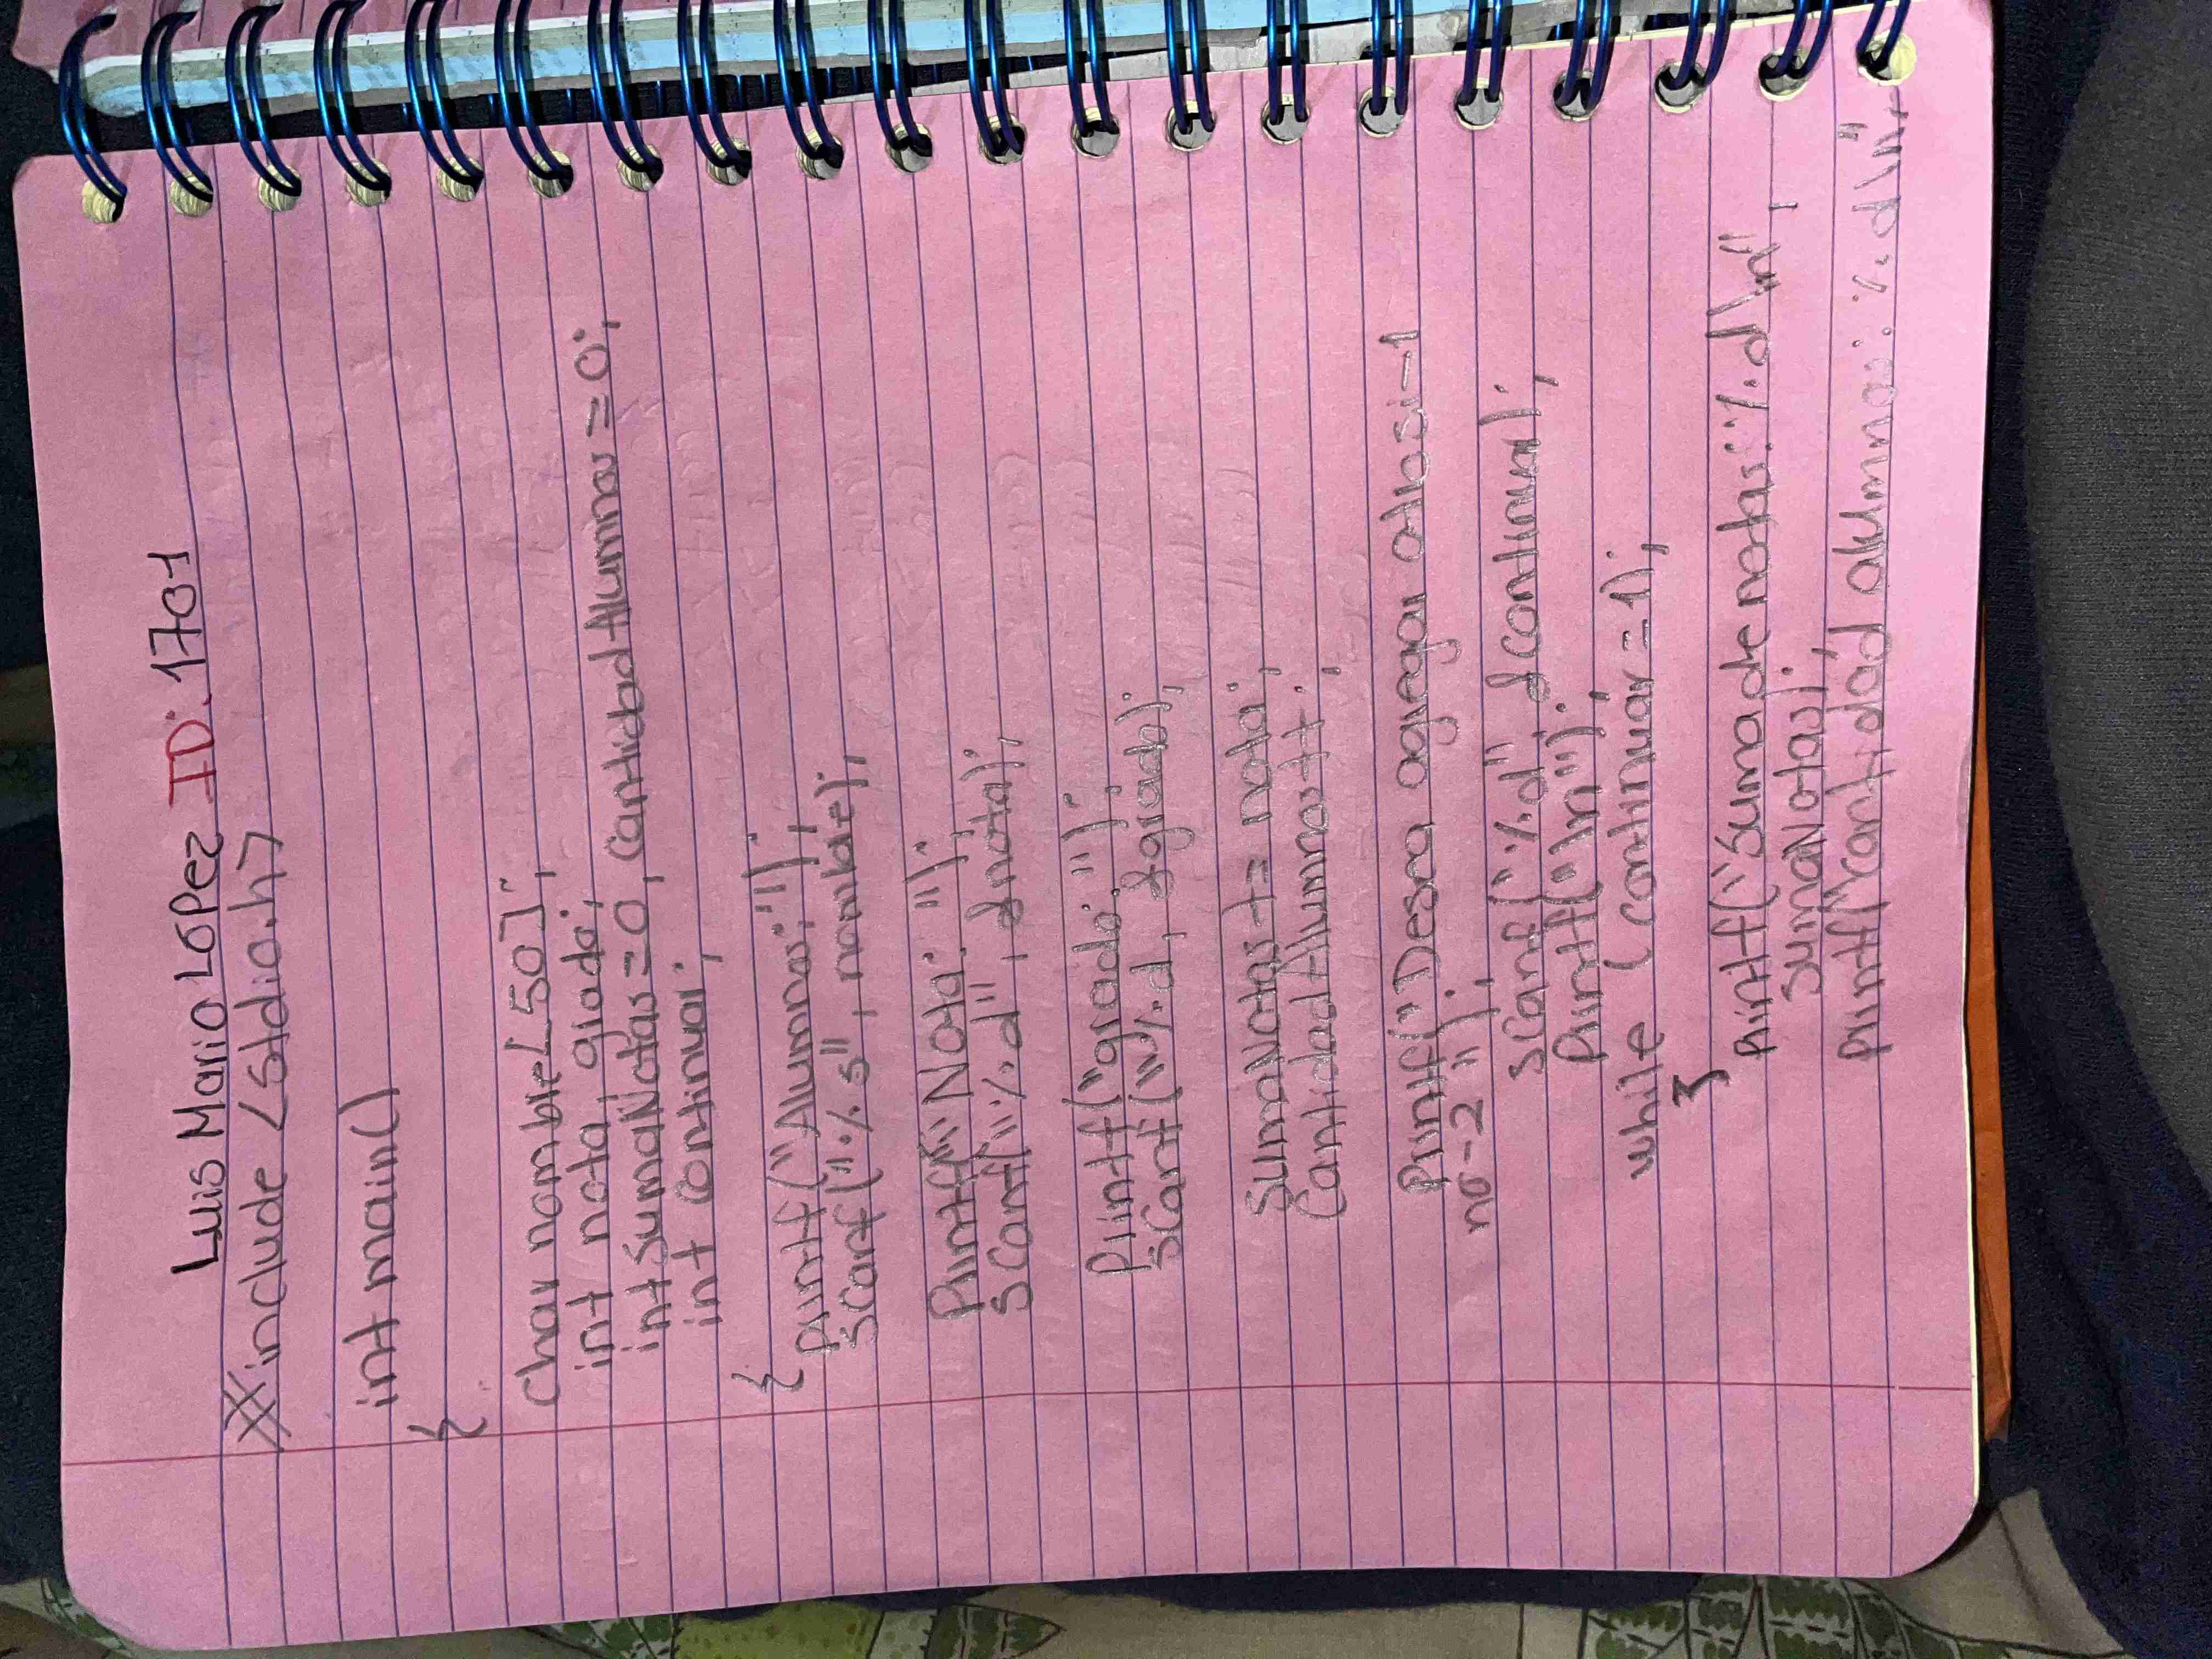 Luis Mario LOPez ID: 1701
#include <stdio.h>
int main()
{
char nombre[50];
int nota, grado;
int sumaNotas=0, cantidadAlumnos=0;
int continuar;
{
printf("Alumnos:");
scanf("%s", nombre);
printf("Nota: ");
scanf("%d", &nota);
printf("grado: ");
scanf("%d, &grado);
sumaNotas += nota;
CantidadAlumnos++;
printf("Desea agregar otro si-1
no-2 ");
scanf("%d", &continuar);
printf("\n");
while (continuar=1);
}
printf("Suma de notas: %d\n",
sumaNotas);
printf("Cantidad alumnos: %d\n"